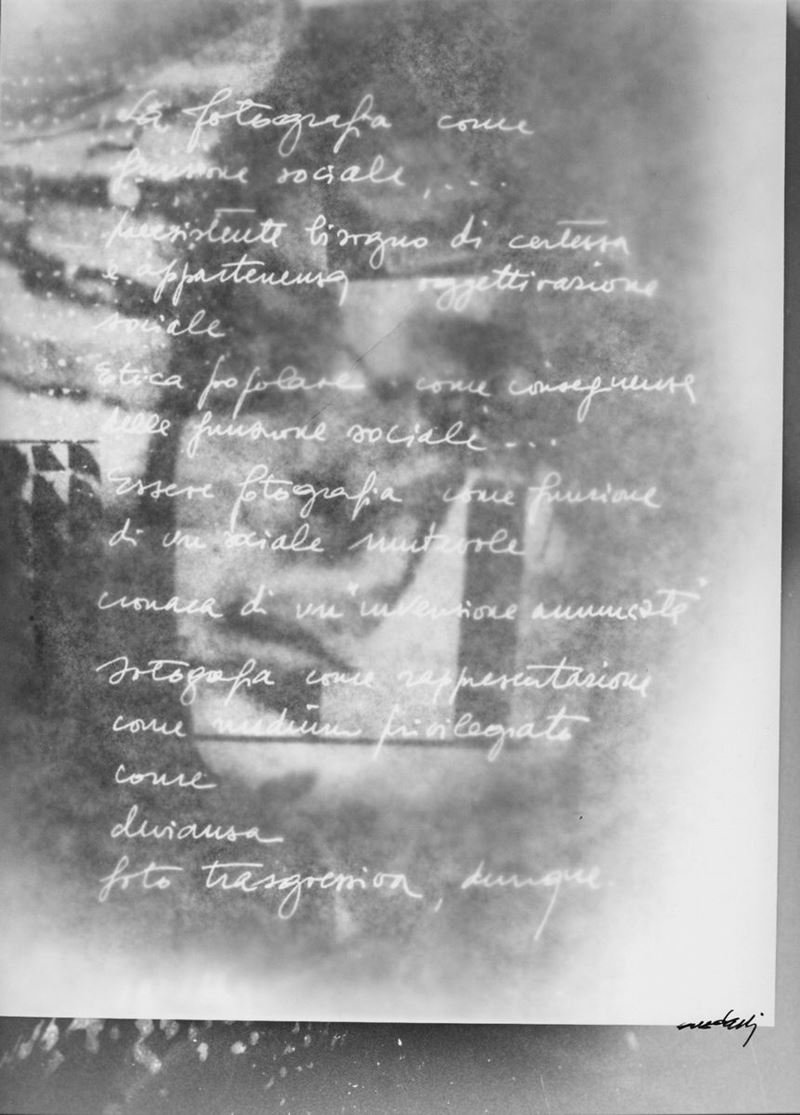 La fotografia come
funzione sociale, ...
preesistente bisogno di certezza
e appartenenza oggettivazione
sociale
Etica popolare come conseguenza
delle funzione sociale ...
Essere fotografia come funzione
di un sociale mutevole
cronaca di un "invenzione annunciata"
fotografia come rappresentazione
come medium privilegiato
come
devianza
foto trasgressiva, dunque.